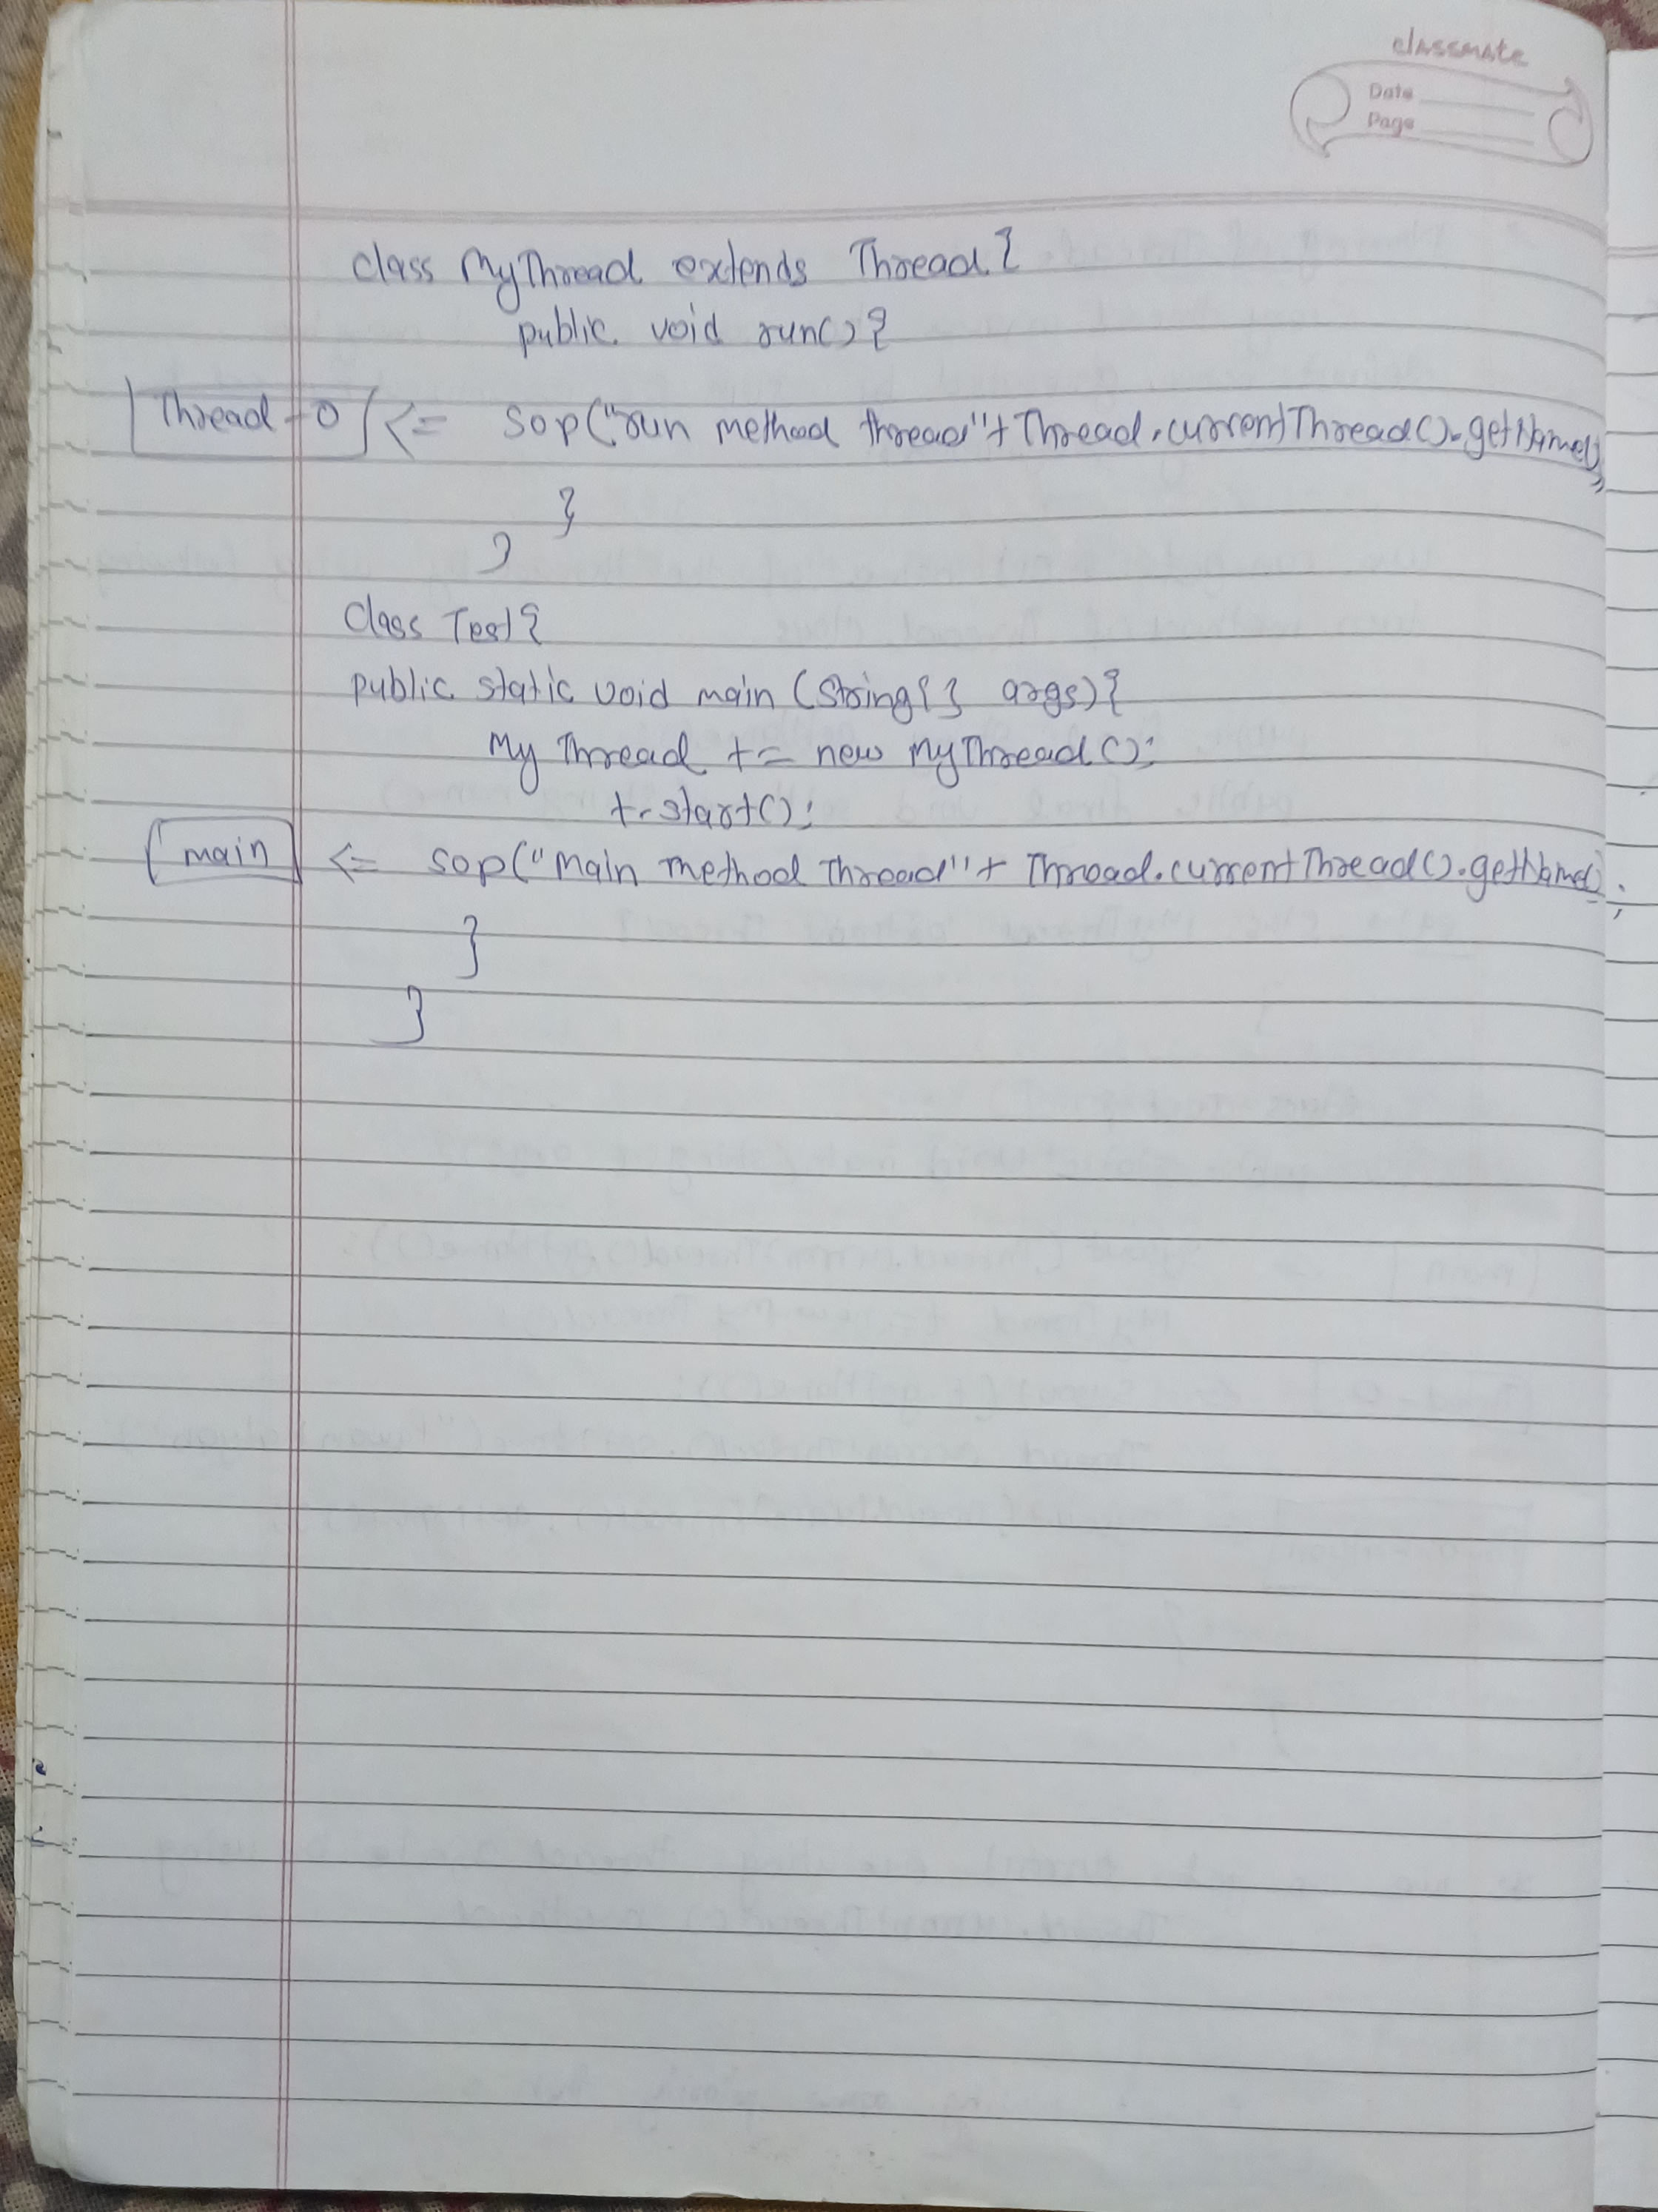 classmate
Date
Page
class MyThread extends Thread{
public void run(){
Thread-0 <= sop("run method thread"+Thread.currentThread().getName();
}
}
class Test{
public static void main (String{} args){
My Thread t= new MyThread();
t.start();
main <= sop("Main method Thread"+ Thread.currentThread().getName();
}
}